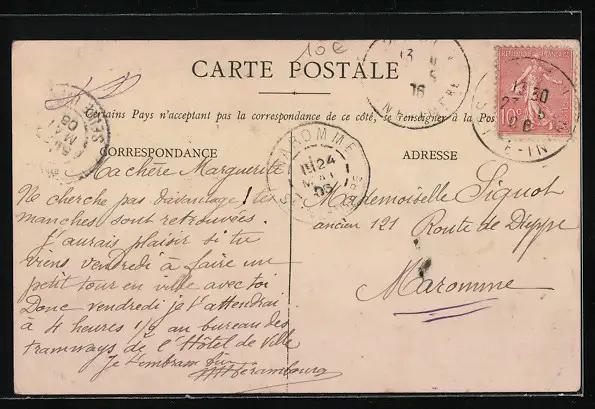 10 €
CARTE POSTALE
Certains Pays n'acceptent pas la correspondance de ce côté, se renseigner à la Pos
CORRESPONDANCE
Ma chère Marguerite
Ne cherche pas davantage ! les
manches sont retrouvées.
J'aurais plaisir si tu
viens vendredi à faire un
petit tour en ville avec toi
Donc vendredi je t'attendrai
à 4 heures 1/2 au bureau des
tramways de l'Hôtel de Ville
Je t'embrasse
ADRESSE
Mademoiselle Signol
ancien 121 Route de Dieppe
Maromme
MAROMME
24
MAI
05
10